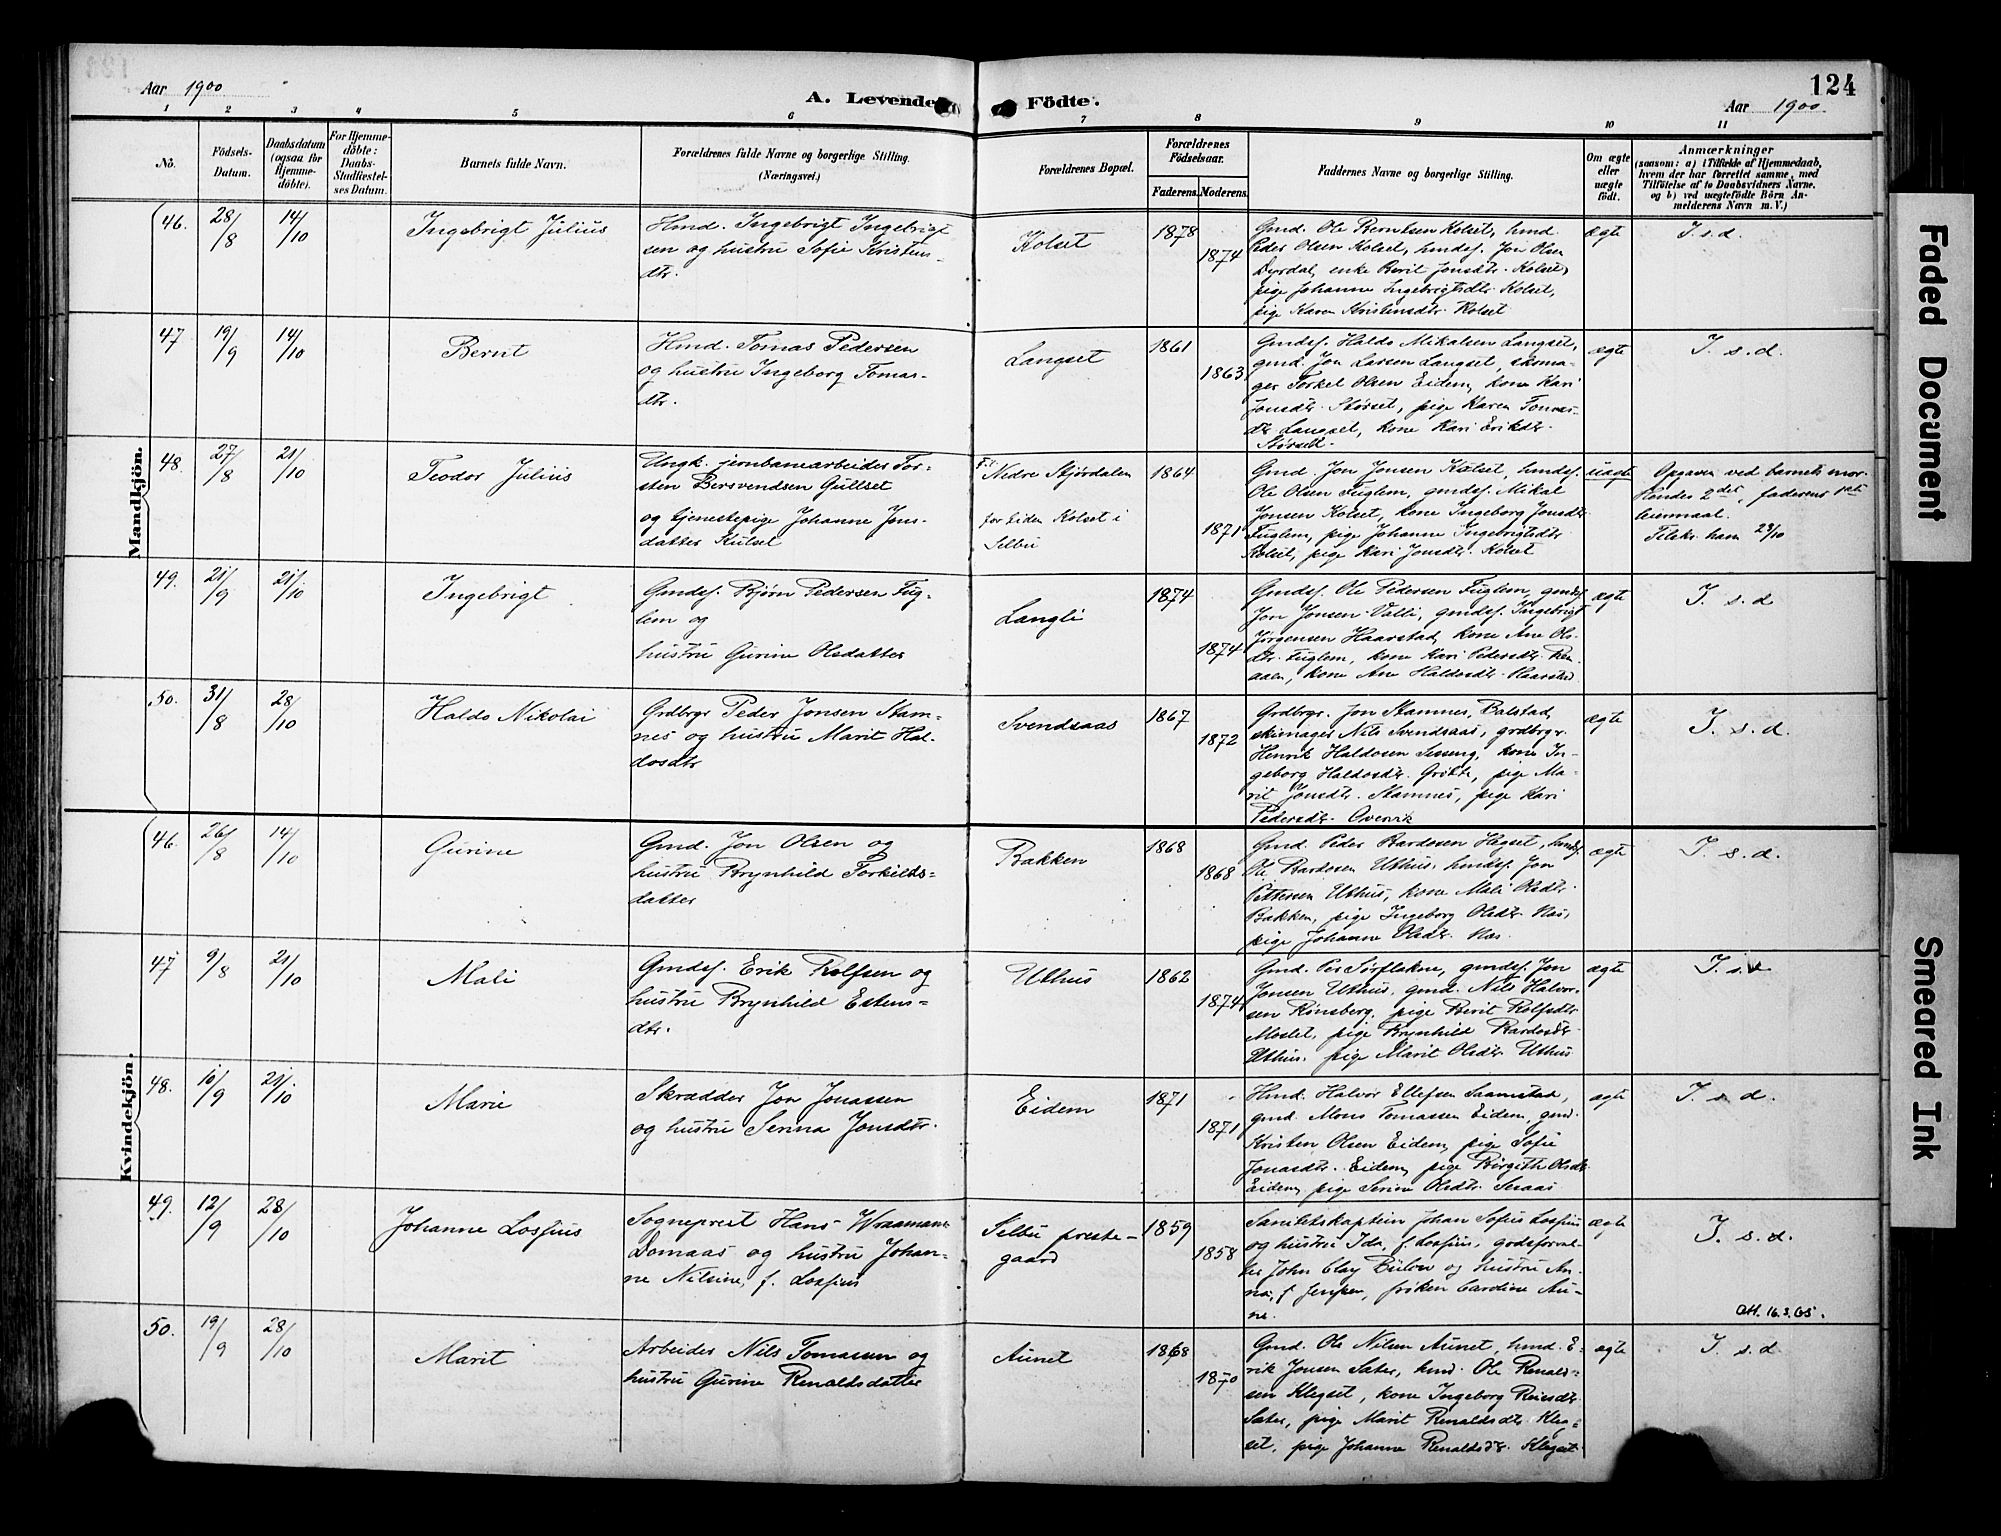 124
Aar 1900.
A. Levende Födte.
Aar 1900.
1 2 3 4 5 6 7 8 9 10 11
No.
Födsels-Datum.
Daabsdatum (ogsaa for Hjemme-döbte).
For Hjemme-döbte: Daabs-Stadfæstel-ses Datum.
Barnets fulde Navn.
Forældrenes fulde Navne og borgerlige Stilling. (Næringsvei.)
Forældrenes Bopæl.
Forældrenes Födselsaar.
Faderens. Moderens.
Faddernes Navne og borgerlige Stilling.
Om ægte eller uægte födt.
Anmærkninger
(saasom: a) i Tilfælde af Hjemmedaab,
hvem der har forrettet samme, med
Tilföielse af to Daabsvidners Navne.
og b) ved uægtefödte Börn An-
melderens Navn m. V.)
Mandkjön.
46. 28/8 14/10 Ingebrigt Julius
Hmd. Ingebrigt Ingebrigt
sen og hustru Sofie Kristens-
dtr.
Kolset
1878 1874
Gmd. Ole Berntsen Kolset, hmd.
Peder Olsen Kolset, hmdsf. Jon Olsen
Dyrdal, enke Berit Jonsdtr. Kolset,
pige Johanne Ingebrigtsdtr. Kolset,
pige Karen Kristensdtr. Kolset
ægte
I. s. d.
47 19/9 14/10 Bernt
Hmd. Tomas Pedersen
og hustru Ingeborg Tomas-
dtr.
Langset
1861 1863
Gmdsf. Haldo Mikalsen Langset,
gmd. Jon Larsen Langset, skoma-
ger Torkel Olsen Eidem, kone Kari
Jonsdtr. Størset, pige Karen Tomas-
dtr Langset, kone Kari Eriksdtr.
Størset.
ægte
I. s. d.
48. 27/8 21/10 Teodor Julius
Ungk. jernbanearbeider Tor-
sten Bersvendsen Gullset
og tjenestepige Johanne Jons-
datter Kulset
F. Nedre Stjørdalen
for tiden Kolset i
Selbu
1864 1871
Gmd. Jon Jonsen Kulset, hmdsf.
Ole Olsen Fuglem, gmdsf. Mikal
Jonsen Kolset, kone Ingeborg Jonsdtr
Fuglem, pige Johanne Ingebrigtsdtr
Kolset, pige Kari Jonsdtr. Kolset
uægte
Opgaven ved barnets mor.
Hendes 2det, faderens 1ste
leiermaal.
49. 21/9 21/10 Ingebrigt
Gmdsf. Bjørn Pedersen Fug-
lem og
hustru Gurine Olsdatter
Langli
1874 1874
Gmdsf. Ole Pedersen Fuglem, gmdsf.
Jon Jonsen Valli, gmdsf. Ingebrigt
Jørgensen Haarstad, kone Ane Ols-
dtr. Fuglem, kone Kari Pedersdtr. Ren-
aaen, kone Ane Haldosdtr. Haarstad
ægte
I. s. d
50. 31/8 28/10 Haldo Nikolai
Grdbrgr Peder Jonsen Stam-
nes og hustru Marit Hal-
dosdtr
Svendsaas
1867 1872
Grdbrgr. Jon Stamnes, Balstad,
skinmager Nils Svendsaas, grdbrgr.
Henrik Haldosen Sesseng, kone In-
geborg Haldosdtr. Grøtte, pige Ma-
rit Jonsdtr. Stamnes, pige Kari
Pedersdtr. Overvik
ægte
I. s. d.
Kvindekjön.
46. 26/8 14/10 Gurine
Gmd. Jon Olsen og
hustru Brynhild Torkilds-
datter
Bakken
1868 1868
Gmd. Peder Bardosen Hegset, hmdsf.
Ole Bardosen Uthus, hmdsf. Jon
Pettersen Uthus, kone Mali Olsdtr.
Bakken, pige Ingeborg Olsdtr. Næs,
pige Johanne Olsdtr. Næs.
ægte
I. s. d.
47 9/8 21/10 Mali
Gmdsf. Erik Rolfsen og
hustru Brynhild Estens-
dtr.
Uthus
1862 1874
Gmd. Per Sørflakne, gmdsf. Jon
Jonsen Uthus, gmd. Nils Halvor-
sen Rønsberg, pige Berit Rolfsdtr
Moslet, pige Brynhild Bardosdtr
Uthus, pige Marit Olsdtr Uthus
ægte
48. 10/9 21/10 Marie
Skrædder Jon Jonassen
og hustru Serina Jonsdtr.
Eidem
1871 1871
Hmd. Halvor Ellefsen Saamstad,
gmd. Mons Tomassen Eidem, gmd.
Kristen Olsen Eidem, pige Sofie
Jonasdtr. Eidem, pige Birgitte Olsdtr
Eidem, pige Serine Olsdtr. Seraas
ægte
I. s. d.
49. 12/9 28/10 Johanne Lossius
Sogneprest Hans Wraamann
Domaas og hustru Johan-
ne Nilsine, f. Lossius
Selbu preste-
gaard
1859 1858
Sanitetskaptein Johan Sofus Lossius
og hustru Ida, f. Lossius, godsforval-
ter John Clay Bülow og hustru An-
na, f. Jenssen, frøken Cardine Au-
ne.
ægte
I. s. d.
Att. 16.3.65.
50. 19/9 28/10 Marit
Arbeider Nils Tomassen og
hustru Gurine Renaldsdatter
Aunet
1868 1870
Gmd. Ole Nilsen Aunet, hmd. E-
rik Jonsen Sæter, hmd. Ole Renald-
sen Klegset, kone Ingeborg
Sæter, pige Marit Renaldsdtr Kleg-
set, pige Johanne Renaldsdtr. Klegset
ægte
I. s. d
Faded Document
Smeared Ink